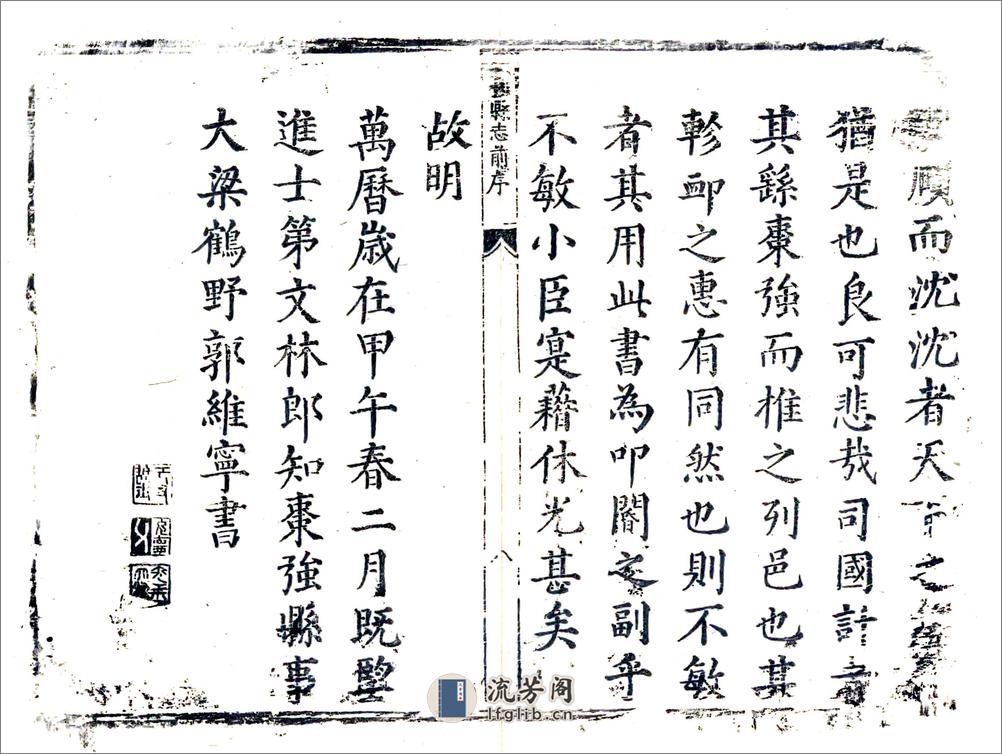 頋而沈沈者天子之
猶是也良可悲哉司國計者
其繇棗強而推之列邑也其
軫卹之惠有同然也則不敏
者其用此書為叩閽之副乎
不敏小臣寔藉休光甚矣
縣志前序
八
故明
萬曆歲在甲午春二月既望
進士第文林郎知棗強縣事
大梁鶴野郭維寧書
流芳阁
lfglib.cn